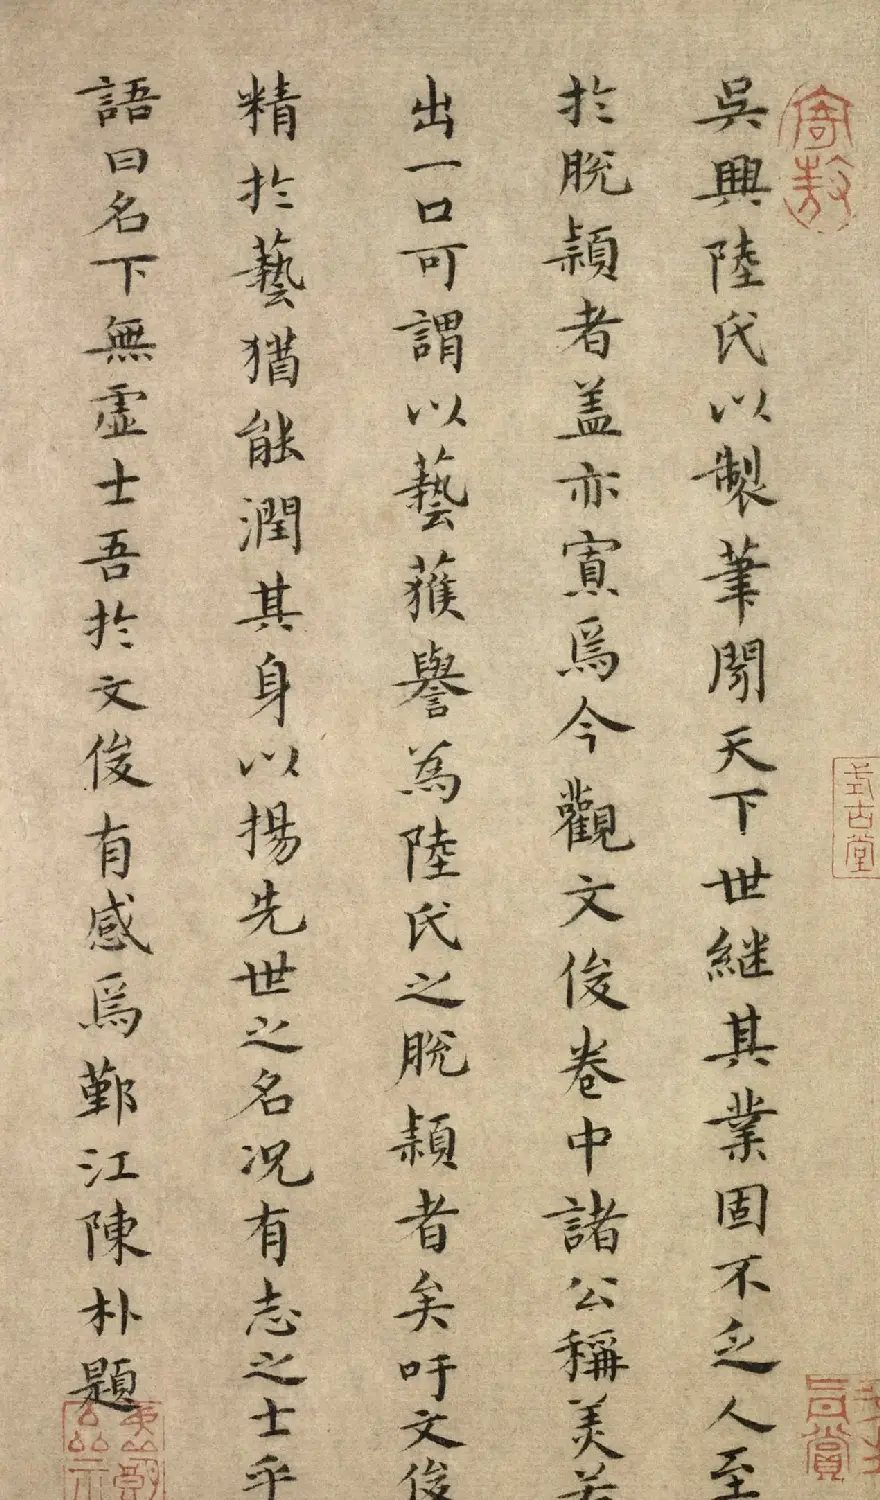 吳興陸氏以製筆聞天下世繼其業固不乏人至
於脫穎者盖亦寡焉今觀文俊卷中諸公稱美若
出一口可謂以藝獲譽為陸氏之脫穎者矣吁文俊
精於藝猶能潤其身以揚先世之名况有志之士乎
語曰名下無虛士吾於文俊有感焉鄞江陳朴題
式古堂